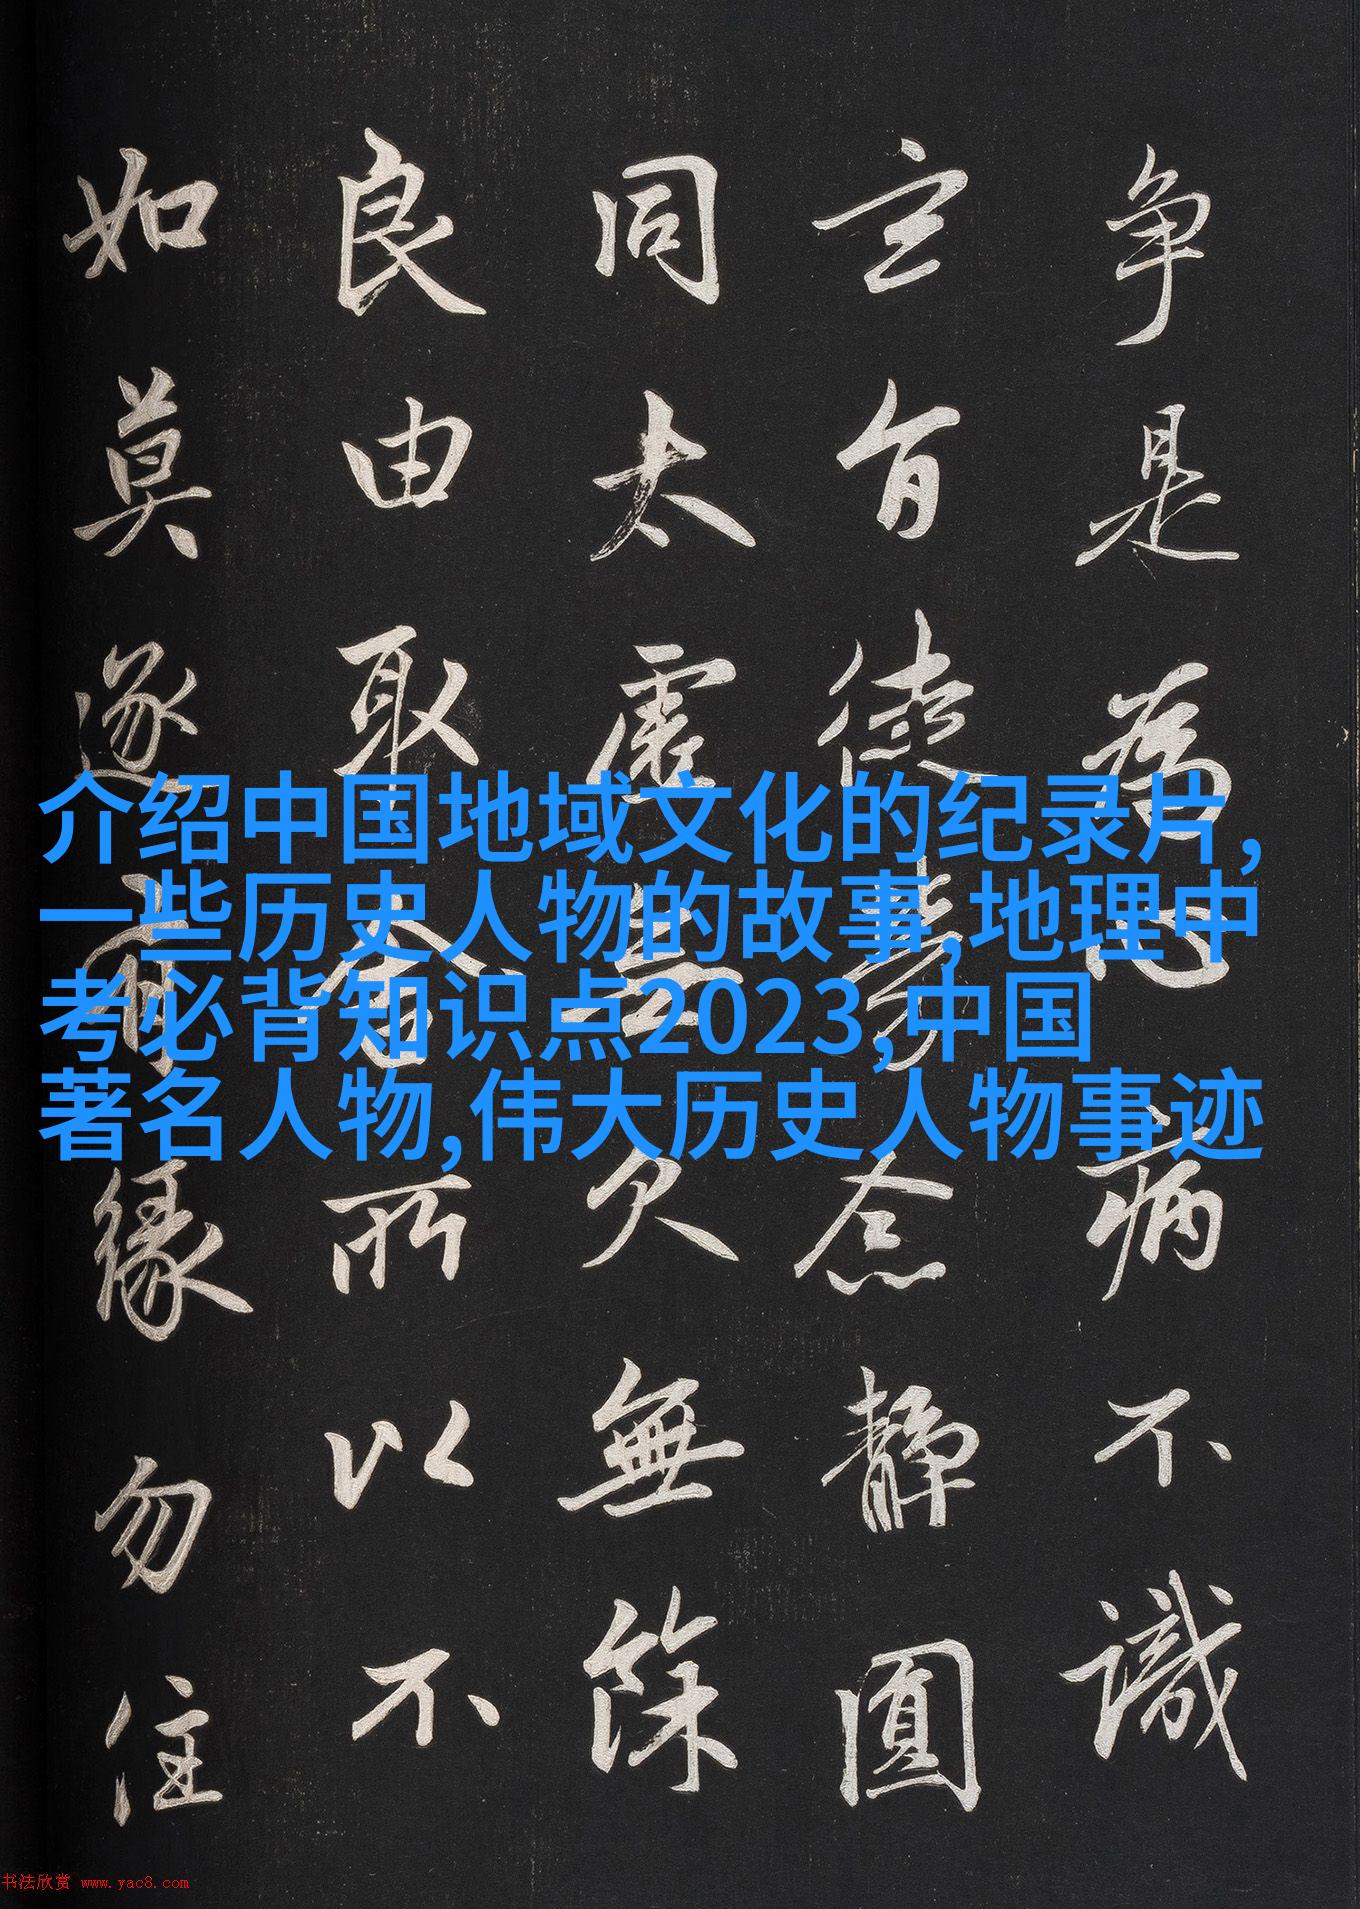 争是為心病不識
玄旨徒勞念静圓
同太虚無欠無餘
良由取舍所以不
如莫逐有緣勿住
介绍中国地域文化的纪录片,
一些历史人物的故事,地理中
考必背知识点2023,中国
著名人物,伟大历史人物事迹
书法欣赏 www.yac8.com